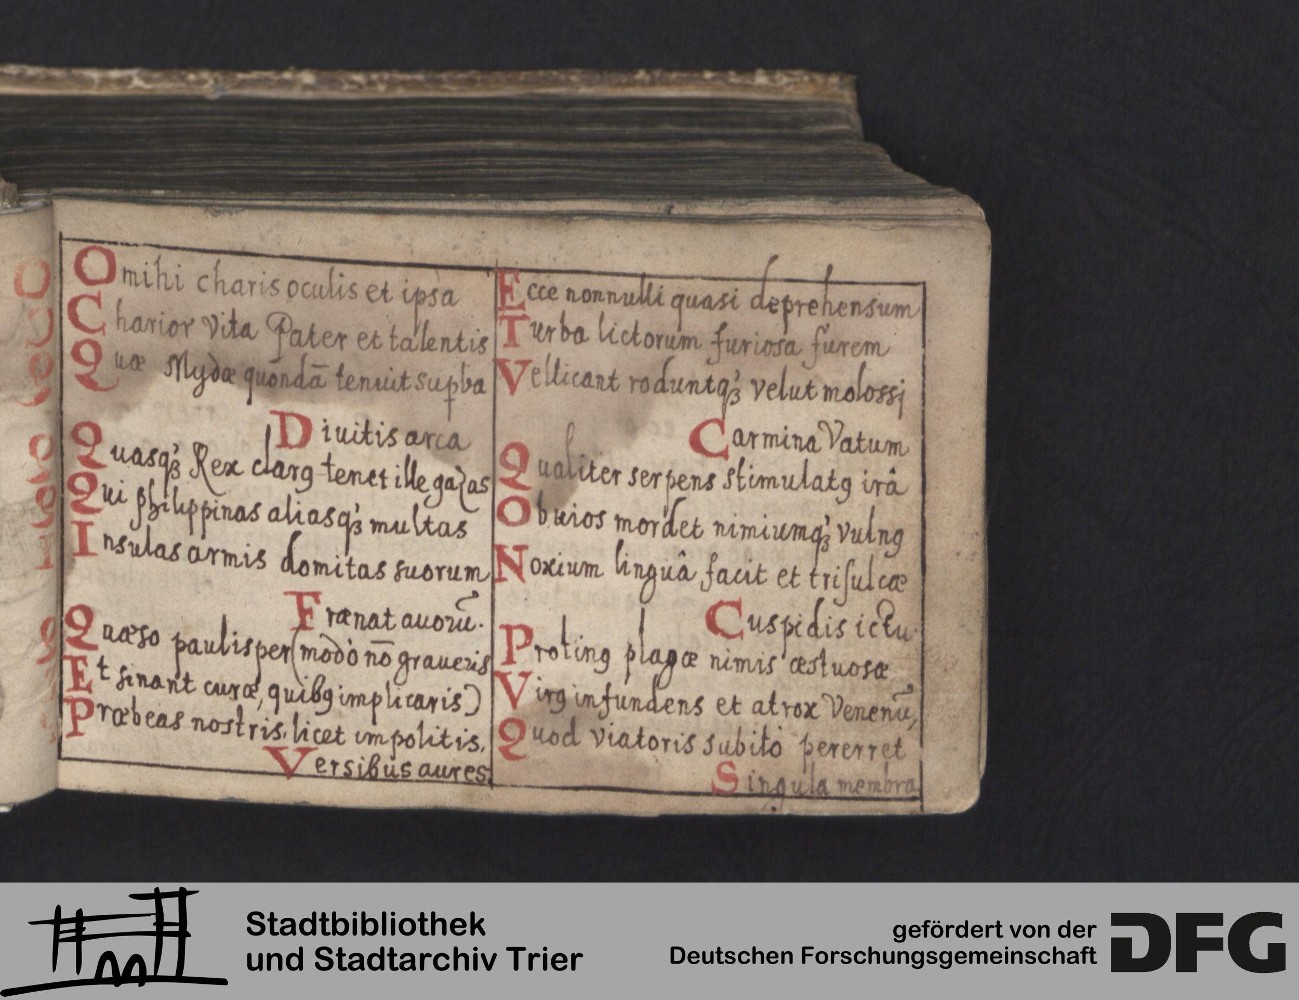 O mihi charis oculis et ipsa
Charior vita Pater et talentis
Quæ Mydæ quondā tenuit supba
Diuitis arca
Quasqꝫ Rex clarꝯ tenet ille gazas
Qui philippinas aliasqꝫ multas
Insulas armis domitas suorum
Frænat auorū.
Quæso paulisper (modò nō graueris
Et sinant curæ, quibꝯ implicaris)
Præbeas nostris, licet impolitis,
Versibus aures
Ecce nonnulli quasi deprehensum
Turba lictorum furiosa furem
Vellicant roduntqꝫ velut molossj
Carmina Vatum
Qualiter serpens stimulatꝯ irâ
Obuios mordet nimiumqꝫ vulnꝯ
Noxium linguâ facit et trisulcæ
Cuspidis ictu.
Protinꝯ plagæ nimis æstuosæ
Virꝯ infundens et atrox Venenū,
Quod viatoris subitò pererret
Singula membra
Stadtbibliothek
und Stadtarchiv Trier
gefördert von der
Deutschen Forschungsgemeinschaft
DFG